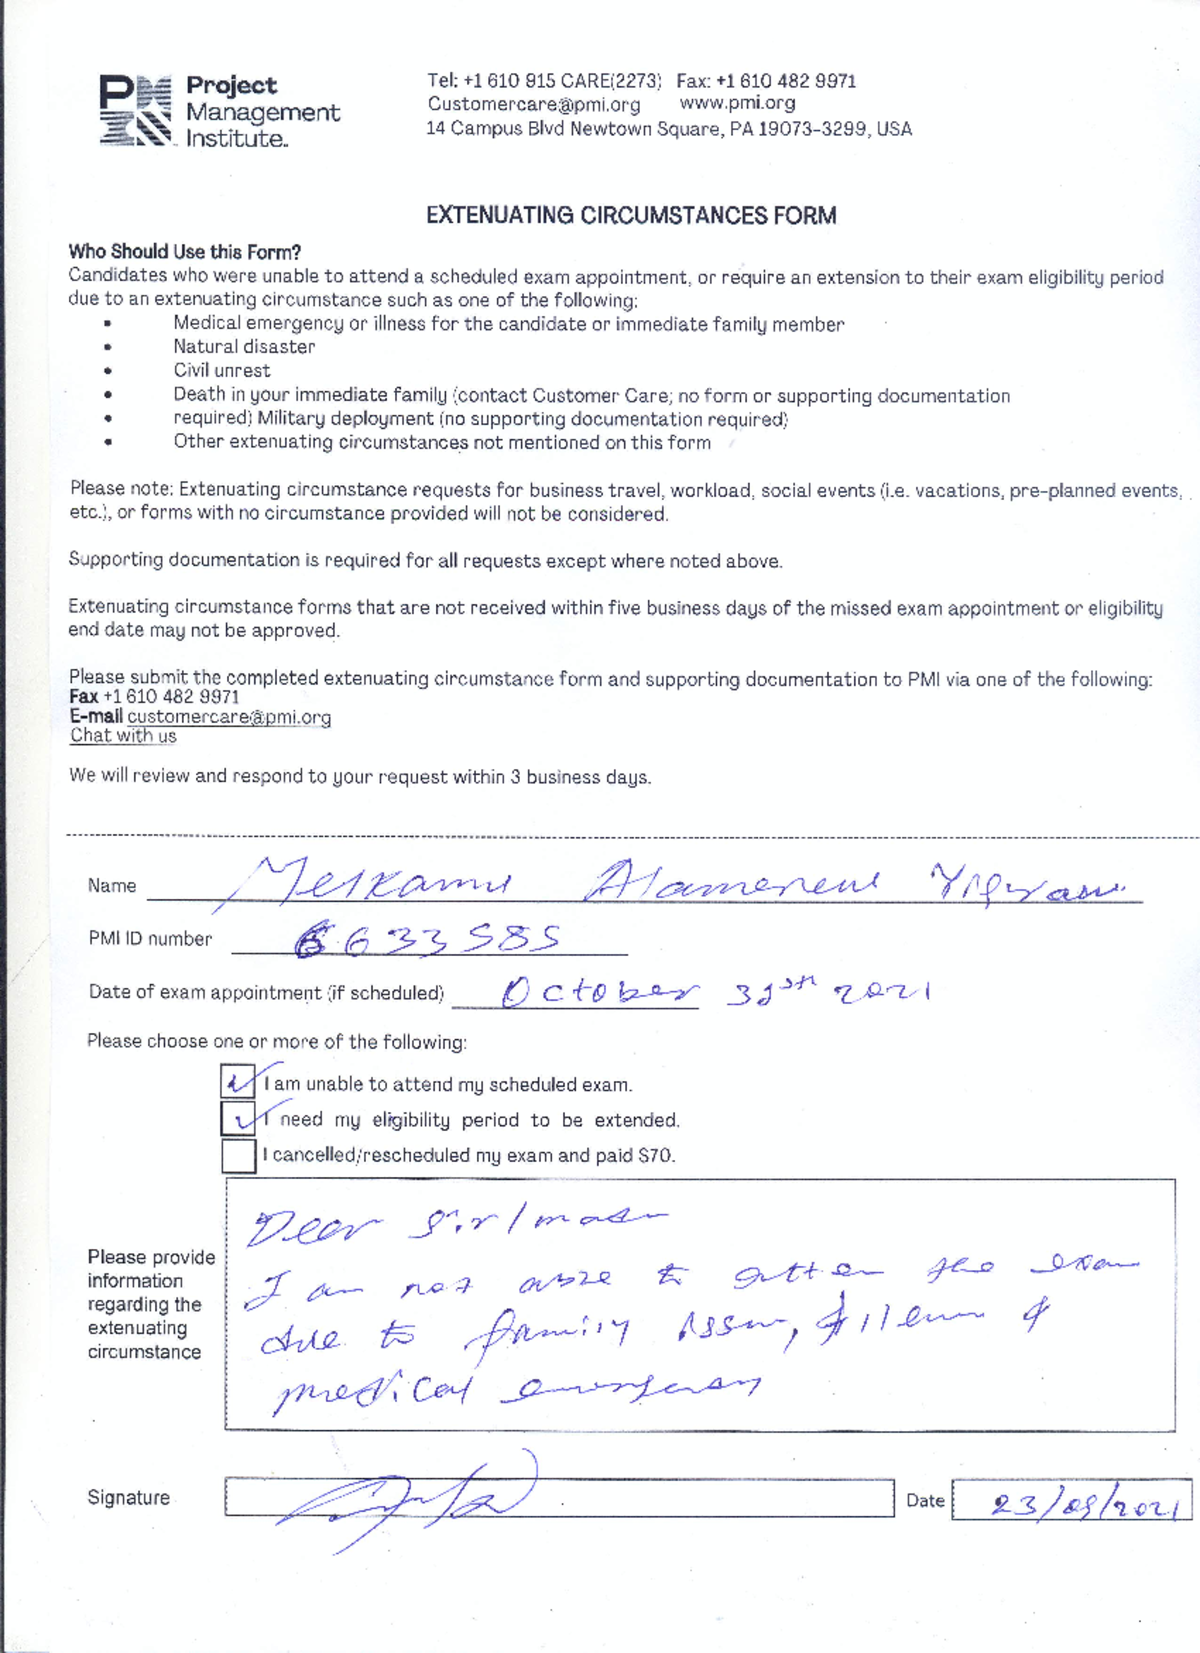 Project
Management
Institute.
Tel: +1 610 915 CARE(2273) Fax: +1 610 482 9971
Customercare@pmi.org www.pmi.org
14 Campus Blvd Newtown Square, PA 19073-3299, USA
EXTENUATING CIRCUMSTANCES FORM
Who Should Use this Form?
Candidates who were unable to attend a scheduled exam appointment, or require an extension to their exam eligibility period
due to an extenuating circumstance such as one of the following:
• Medical emergency or illness for the candidate or immediate family member
• Natural disaster
• Civil unrest
• Death in your immediate family (contact Customer Care; no form or supporting documentation
• required) Military deployment (no supporting documentation required)
• Other extenuating circumstances not mentioned on this form
Please note: Extenuating circumstance requests for business travel, workload, social events (i.e. vacations, pre-planned events,
etc.), or forms with no circumstance provided will not be considered.
Supporting documentation is required for all requests except where noted above.
Extenuating circumstance forms that are not received within five business days of the missed exam appointment or eligibility
end date may not be approved.
Please submit the completed extenuating circumstance form and supporting documentation to PMI via one of the following:
Fax +1 610 482 9971
E-mail customercare@pmi.org
Chat with us
We will review and respond to your request within 3 business days.
Name Melkamu Alamerew
PMI ID number 6633585
Date of exam appointment (if scheduled) October 2021
Please choose one or more of the following:
I am unable to attend my scheduled exam.
I need my eligibility period to be extended.
I cancelled/rescheduled my exam and paid $70.
Please provide
information
regarding the
extenuating
circumstance
Dear Sir/
I am not able to the exam
due to family &
medical
Signature
Date 23/09/2021